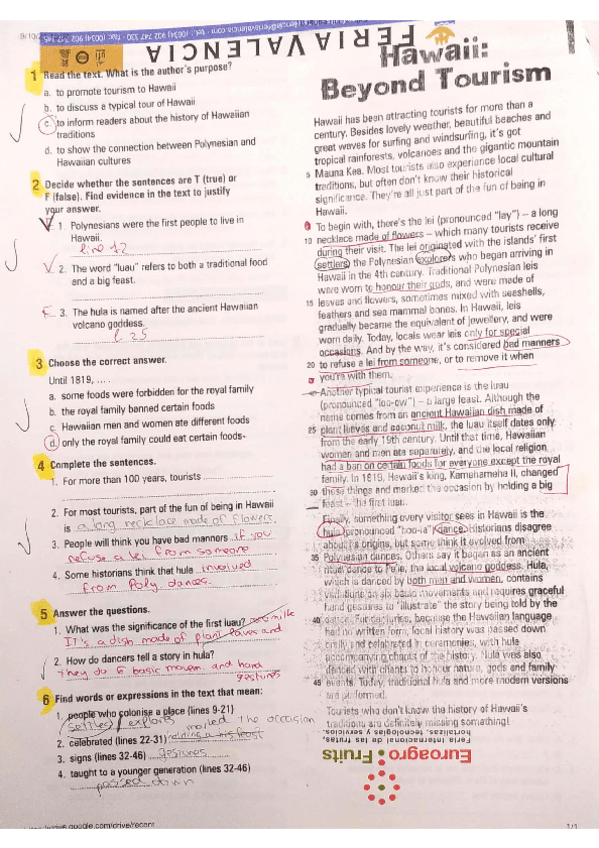 FERIA VALENCIA
1 Read the text. What is the author's purpose?
a. to promote tourism to Hawaii
b. to discuss a typical tour of Hawaii
c. to inform readers about the history of Hawaiian
traditions
d. to show the connection between Polynesian and
Hawaiian cultures
2 Decide whether the sentences are T (true) or
F (false). Find evidence in the text to justify
your answer.
1. Polynesians were the first people to live in
Hawaii.
line 12
2. The word "luau" refers to both a traditional food
and a big feast.
F 3. The hula is named after the ancient Hawaiian
volcano goddess.
l 25
3 Choose the correct answer.
Until 1819, ... .
a. some foods were forbidden for the royal family
b. the royal family banned certain foods
c. Hawaiian men and women ate different foods
d. only the royal family could eat certain foods
4 Complete the sentences.
1. For more than 100 years, tourists
2. For most tourists, part of the fun of being in Hawaii
is a long necklace made of flowers.
3. People will think you have bad manners if you
refuse a lei from someone
4. Some historians think that hula involved
from Poly dances.
5 Answer the questions.
1. What was the significance of the first luau?
It's a dish made of plant leaves and
2. How do dancers tell a story in hula?
They do 6 basic movem. and hand
gestures
6 Find words or expressions in the text that mean:
1. people who colonise a place (lines 9-21)
settles / explores
marked the occasion
2. celebrated (lines 22-31)
3. signs (lines 32-46) gestures
4. taught to a younger generation (lines 32-46)
passed down
Hawaii:
Beyond Tourism
Hawaii has been attracting tourists for more than a
century. Besides lovely weather, beautiful beaches and
great waves for surfing and windsurfing, it's got
tropical rainforests, volcanoes and the gigantic mountain
5 Mauna Kea. Most tourists also experience local cultural
traditions, but often don't know their historical
significance. They're all just part of the fun of being in
Hawaii.
To begin with, there's the lei (pronounced "lay") – a long
10 necklace made of flowers – which many tourists receive
during their visit. The lei originated with the islands' first
settlers, the Polynesian explorers who began arriving in
Hawaii in the 4th century. Traditional Polynesian leis
were worn to honour their gods, and were made of
15 leaves and flowers, sometimes mixed with seashells,
feathers and sea mammal bones. In Hawaii, leis
gradually became the equivalent of jewellery, and were
worn daily. Today, locals wear leis only for special
occasions. And by the way, it's considered bad manners
20 to refuse a lei from someone, or to remove it when
you're with them.
Another typical tourist experience is the luau
(pronounced "loo-ow") – a large feast. Although the
name comes from an ancient Hawaiian dish made of
25 plant leaves and coconut milk, the luau itself dates only
from the early 19th century. Until that time, Hawaiian
women and men ate separately, and the local religion
had a ban on certain foods for everyone except the royal
family. In 1819, Hawaii's king, Kamehameha II, changed
30 these things and marked the occasion by holding a big
feast – the first luau.
Finally, something every visitor sees in Hawaii is the
hula (pronounced "hoo-la") dance. Historians disagree
about its origins, but some think it evolved from
35 Polynesian dances. Others say it began as an ancient
ritual dance to Pele, the local volcano goddess. Hula,
which is danced by both men and women, contains
variations on six basic movements and requires graceful
hand gestures to "illustrate" the story being told by the
40 dance. For centuries, because the Hawaiian language
had no written form, local history was passed down
orally and celebrated in ceremonies, with hula
accompanying chants of the history. Hula was also
danced with chants to honour nature, gods and family
45 events. Today, traditional hula and more modern versions
are performed.
Tourists who don't know the history of Hawaii's
traditions are definitely missing something!
Feria internacional de las frutas,
hortalizas, tecnologías y servicios.
Euroagro Fruits
google.com/drive/recent
1/1